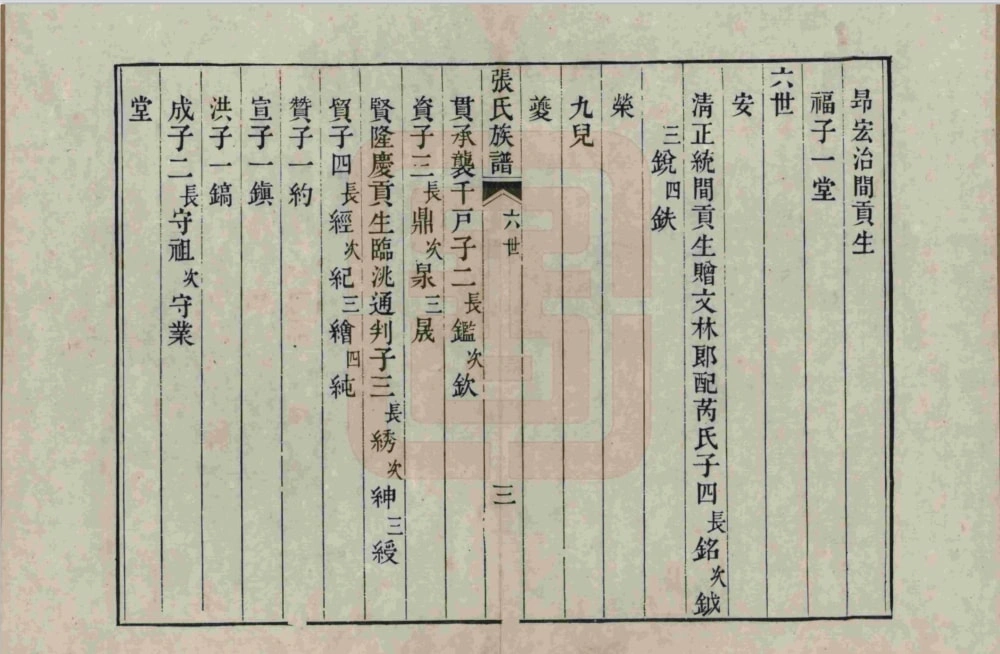 昂宏治間貢生
福子一堂
六世
安
清正統間貢生贈文林郎配芮氏子四長銘次鉞
三銳四鈇
榮
九兒
夔
張氏族譜 六世 三
貫承襲千戸子二長鑑次欽
資子三長鼎次泉三晟
賢隆慶貢生臨洮通判子三長綉次紳三綬
貿子四長經次紀三繪四純
贊子一約
宣子一鎮
洪子一鎬
成子二長守祖次守業
堂